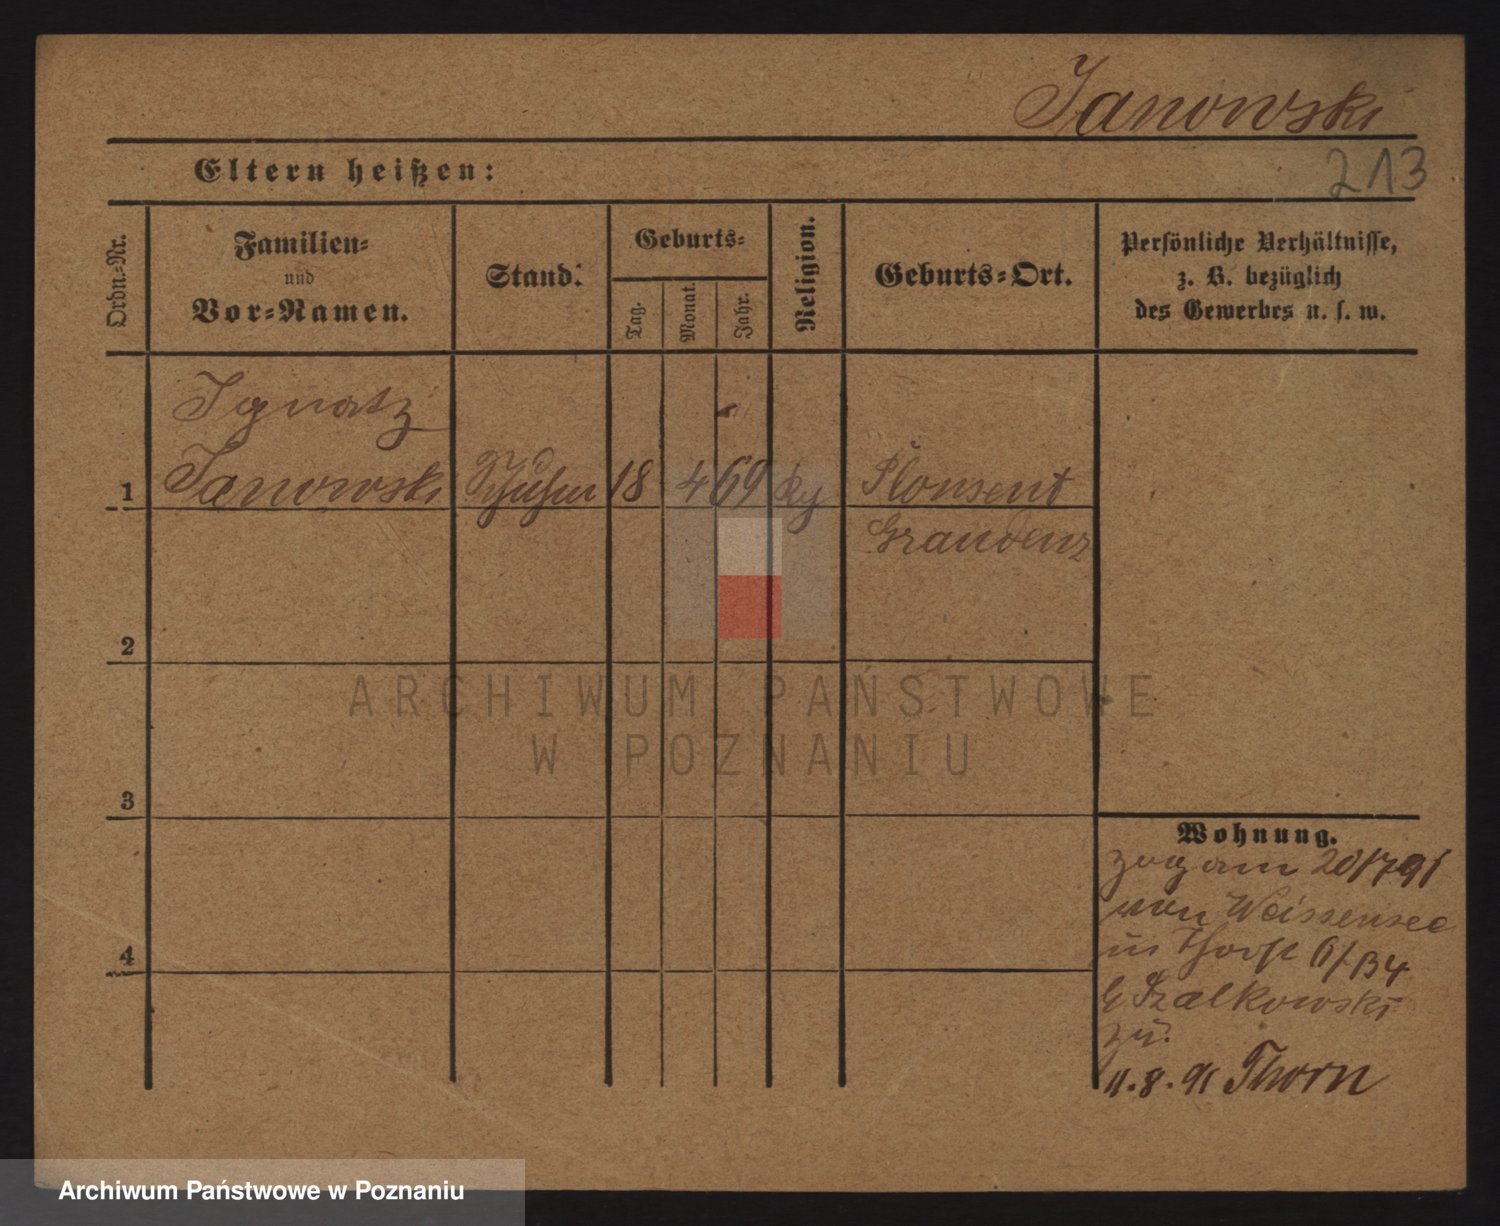 Janowski
213
Eltern heißen:
Ordn.=Nr.
Familien=
und
Vor=Namen.
Stand.
Geburts=
Tag.
Monat.
Jahr.
Religion.
Geburts=Ort.
Persönliche Verhältnisse,
z. B. bezüglich
des Gewerbes u. s. w.
Ignatz
1 Janowski 18 4 69 Plonsent
Graudenz
2
3
4
Wohnung.
zog am 20/7 91
von Weissensee
in
Szalkowski
zu.
11.8.91 Thorn
ARCHIWUM PAŃSTWOWE
W POZNANIU
Archiwum Państwowe w Poznaniu